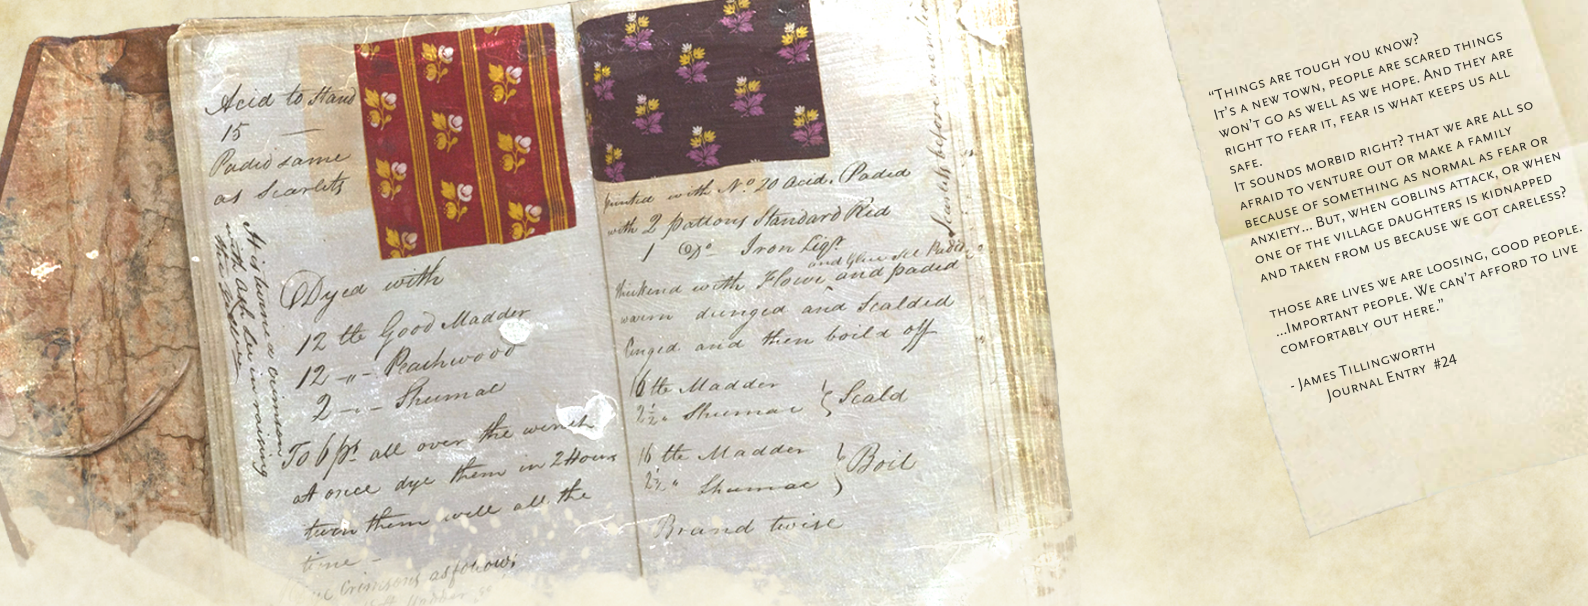 Acid to stand
15 —
Padid same
as Scarlets
Dyed with
12 lb Good Madder
12 -"- Peachwood
2 -"- Shumac
To 6 ps. all over the winch
at once dye them in 2 Hours
turn them well all the
time -
Crimsons as follows
with No. 20 Acid. Paded
with 2 pattons Standard Red
1 Do. Iron Liqr.
thickend with Flour and paded
warm dunged and Scalded
and then boild off
16 lb Madder
2½ " Shumac } Scald
16 lb Madder
2½ " Shumac } Boil
Brand twise
“Things are tough you know?
It’s a new town, people are scared things
won’t go as well as we hope. And they are
right to fear it, fear is what keeps us all
safe.
It sounds morbid right? That we are all so
afraid to venture out or make a family
because of something as normal as fear or
anxiety... But, when goblins attack, or when
one of the village daughters is kidnapped
and taken from us because we got careless?
those are lives we are loosing, good people.
...Important people. We can’t afford to live
comfortably out here.”
- James Tillingworth
Journal Entry #24